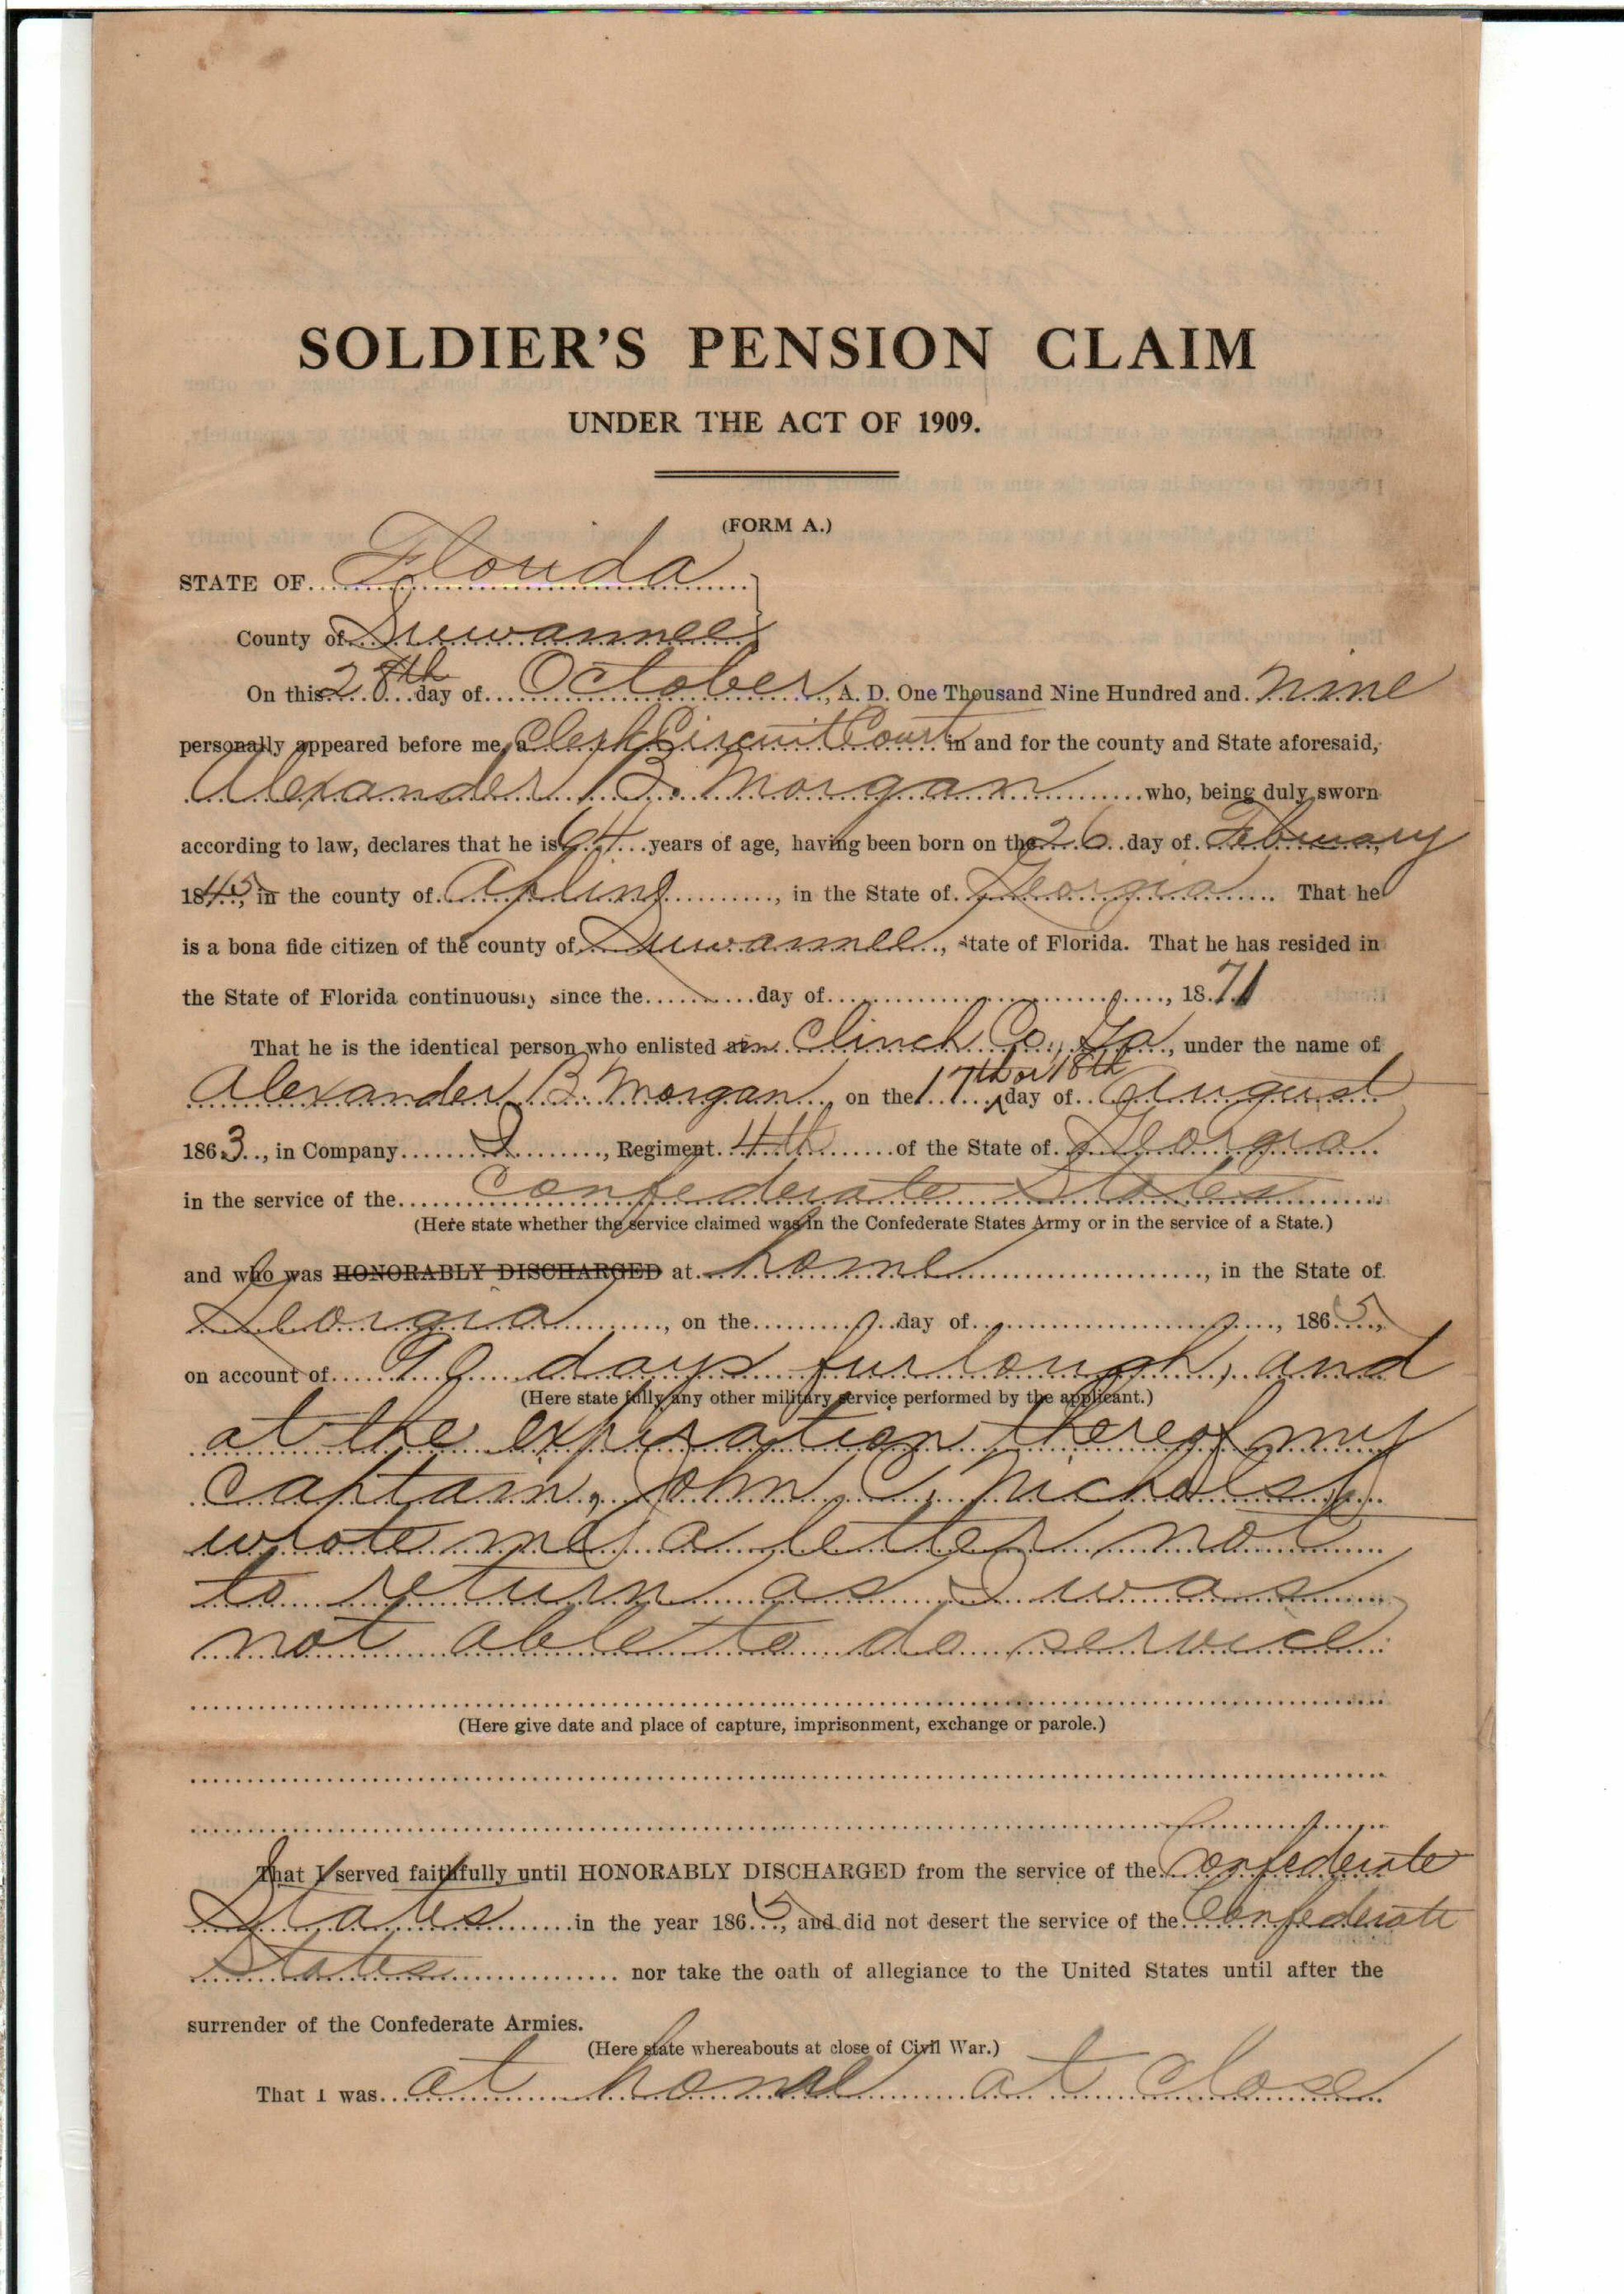 SOLDIER'S PENSION CLAIM
UNDER THE ACT OF 1909.
(FORM A.)
STATE OF Florida
County of Suwannee
On this 28th day of October, A. D. One Thousand Nine Hundred and nine
personally appeared before me, a Clerk Circuit Court in and for the county and State aforesaid,
Alexander B. Morgan who, being duly sworn
according to law, declares that he is 64 years of age, having been born on the 26 day of February
1845, in the county of Apling, in the State of Georgia. That he
is a bona fide citizen of the county of Suwannee, State of Florida. That he has resided in
the State of Florida continuously since the day of , 1871
That he is the identical person who enlisted in Clinch Co., Ga, under the name of
Alexander B. Morgan, on the 17th or 18th day of August
1863, in Company I, Regiment 4th of the State of Georgia
in the service of the Confederate States
(Here state whether the service claimed was in the Confederate States Army or in the service of a State.)
and who was HONORABLY DISCHARGED at home, in the State of
Georgia, on the day of , 1865,
on account of 90 days furlough, and
(Here state fully any other military service performed by the applicant.)
at the expiration thereof my
Captain, John C. Nichols,
wrote me a letter not
to return as I was
not able to do service
(Here give date and place of capture, imprisonment, exchange or parole.)
That I served faithfully until HONORABLY DISCHARGED from the service of the Confederate
States in the year 1865, and did not desert the service of the Confederate
States nor take the oath of allegiance to the United States until after the
surrender of the Confederate Armies.
(Here state whereabouts at close of Civil War.)
That I was at home at close